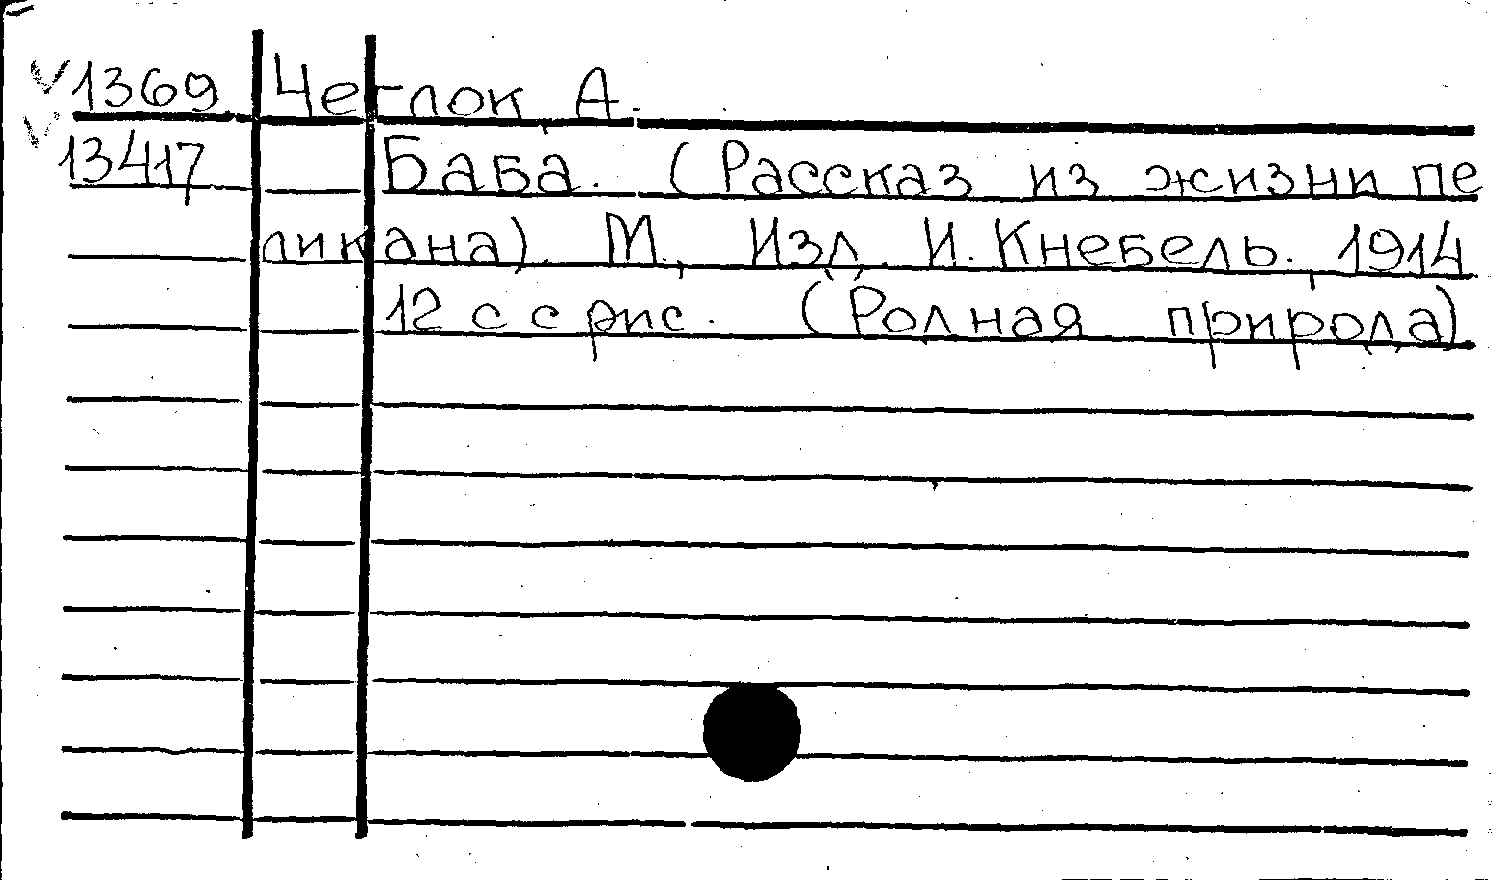 1369 Чеглок, А.
13417 Баба. (Рассказ из жизни пе
ликана). М., Изд. И. Кнебель, 1914
12 с с рис. (Родная природа)